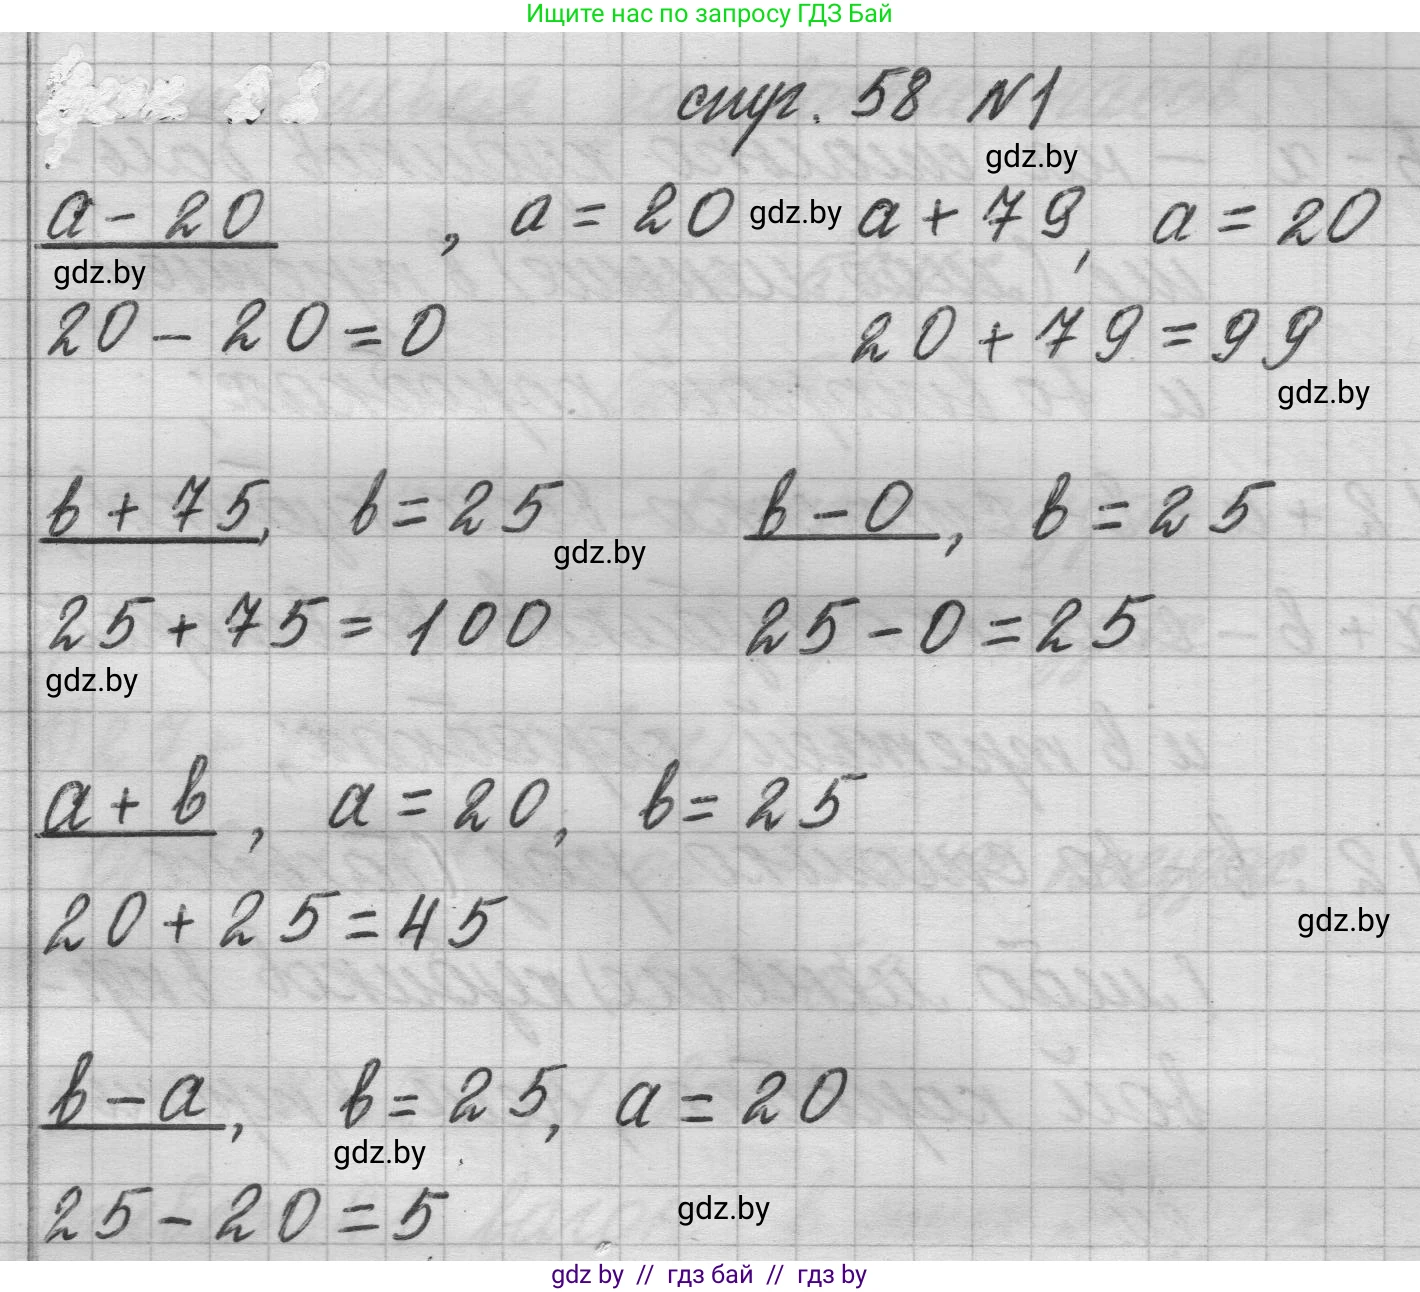 Ищите нас по запросу ГДЗ Бай
стр. 58 №1
gdz.by
a - 20 , a = 20 gdz.by a + 79, a = 20
gdz.by
20 - 20 = 0 20 + 79 = 99
gdz.by
b + 75, b = 25 b - 0, b = 25
gdz.by
25 + 75 = 100 25 - 0 = 25
gdz.by
a + b, a = 20, b = 25
20 + 25 = 45
gdz.by
b - a, b = 25, a = 20
gdz.by
25 - 20 = 5
gdz.by
gdz by // гдз бай // гдз by